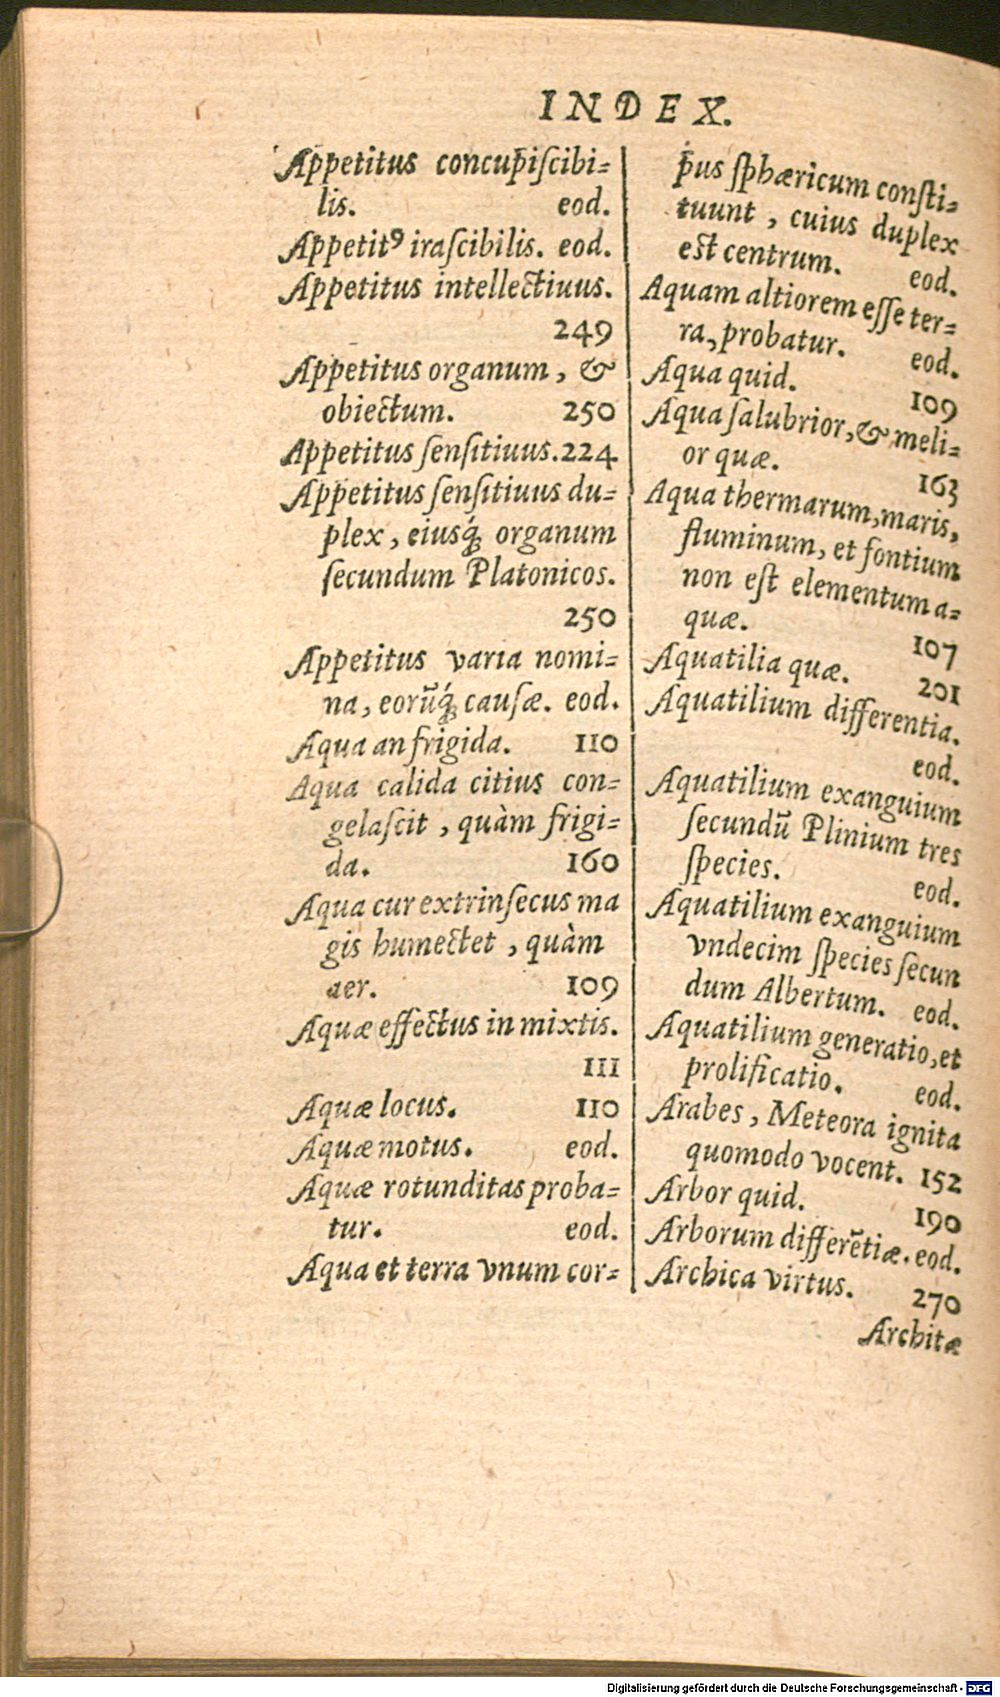 INDEX.
Appetitus concupiſcibi⸗
lis. eod.
Appetitꝰ iraſcibilis. eod.
Appetitus intellectiuus.
249
Appetitus organum, &
obiectum. 250
Appetitus ſenſitiuus. 224
Appetitus ſenſitiuus du⸗
plex, eiusq́; organum
ſecundum Platonicos.
250
Appetitus varia nomi⸗
na, eorũq́; cauſæ. eod.
Aqua an frigida. 110
Aqua calida citius con⸗
gelaſcit, quàm frigi⸗
da. 160
Aqua cur extrinſecus ma
gis humectet, quàm
aer. 109
Aquæ effectus in mixtis.
111
Aquæ locus. 110
Aquæ motus. eod.
Aquæ rotunditas proba⸗
tur. eod.
Aqua et terra vnum cor⸗
pus ſphæricum conſti⸗
tuunt, cuius duplex
est centrum. eod.
Aquam altiorem eſſe ter⸗
ra, probatur. eod.
Aqua quid. 109
Aqua ſalubrior, & meli⸗
or quæ. 163
Aqua thermarum, maris,
fluminum, et fontium
non eſt elementum a⸗
quæ. 107
Aquatilia quæ. 201
Aquatilium differentia.
eod.
Aquatilium exanguium
ſecundũ Plinium tres
ſpecies. eod.
Aquatilium exanguium
vndecim ſpecies ſecun
dum Albertum. eod.
Aquatilium generatio, et
prolificatio. eod.
Arabes, Meteora ignita
quomodo vocent. 152
Arbor quid. 190
Arborum differẽtiæ. eod.
Archica virtus. 270
Architæ
Digitalisierung gefördert durch die Deutsche Forschungsgemeinschaft - DFG